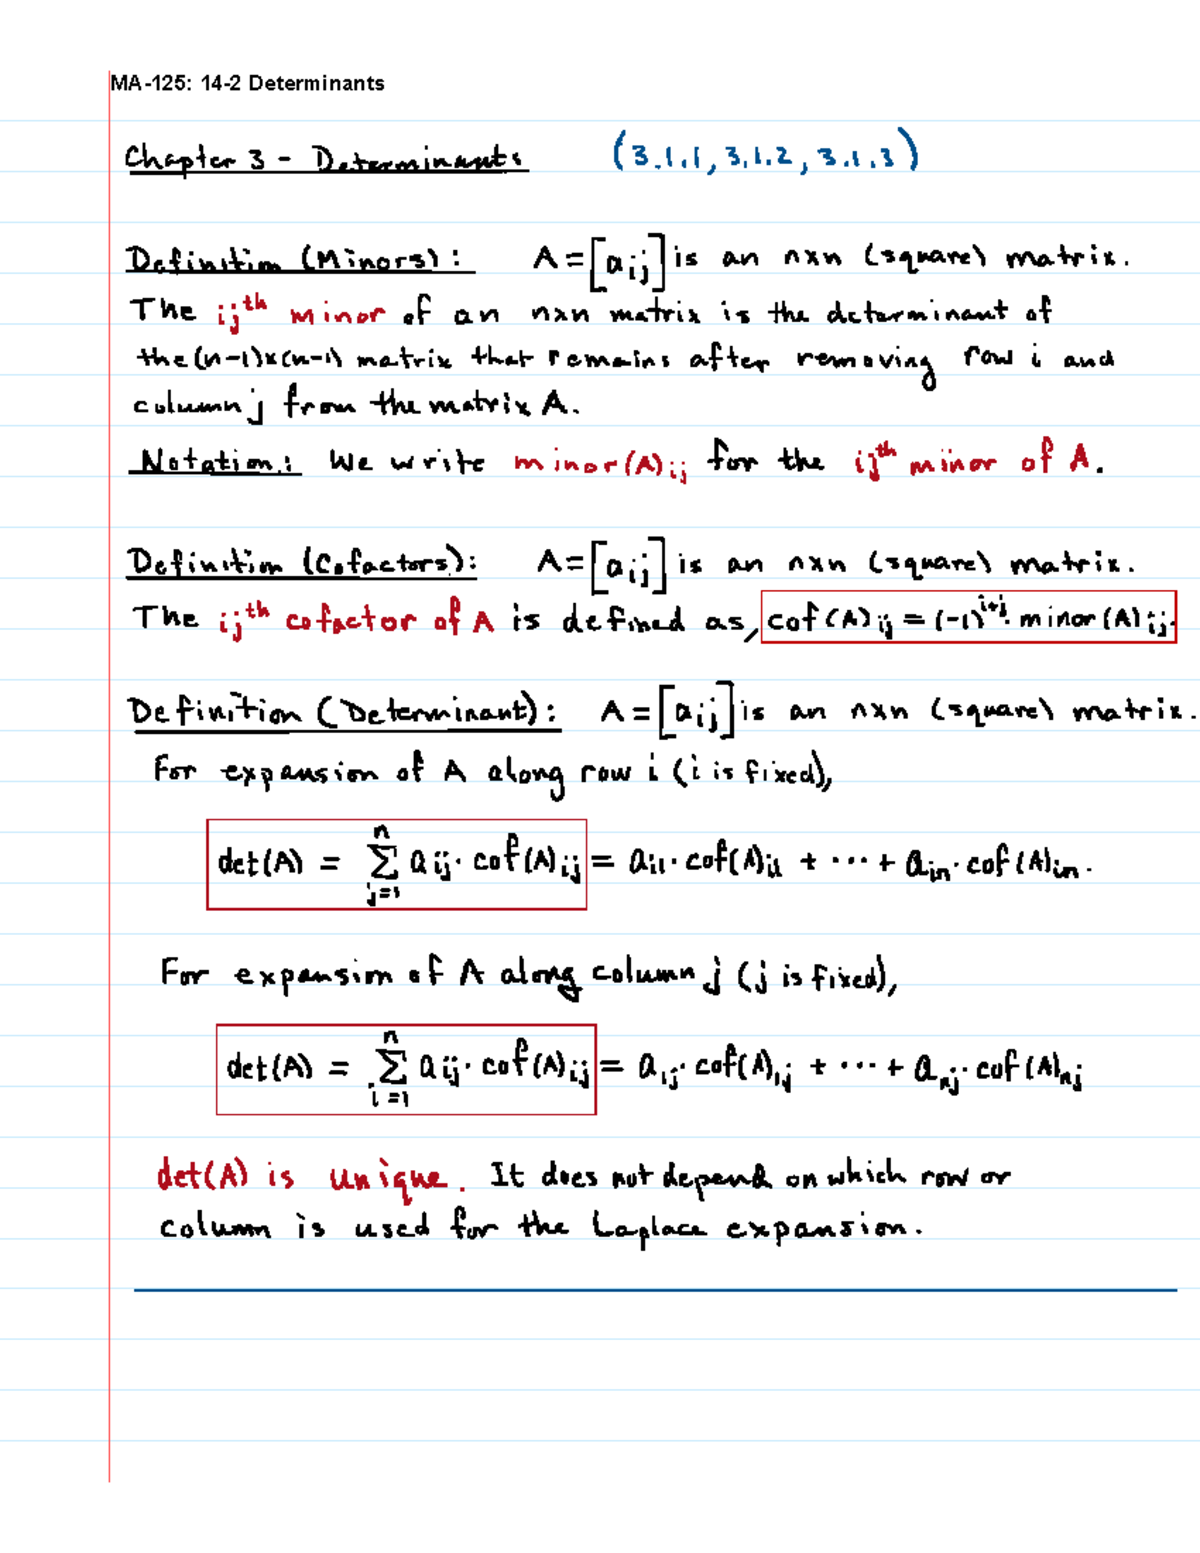 MA-125: 14-2 Determinants
Chapter 3 - Determinants (3.1.1, 3.1.2, 3.1.3)
Definition (Minors): A = [aij] is an nxn (square) matrix.
The ij^th minor of an nxn matrix is the determinant of
the (n-1)x(n-1) matrix that remains after removing row i and
column j from the matrix A.
Notation: We write minor(A)ij for the ij^th minor of A.
Definition (Cofactors): A = [aij] is an nxn (square) matrix.
The ij^th cofactor of A is defined as, cof(A)ij = (-1)^i+j · minor(A)ij.
Definition (Determinant): A = [aij] is an nxn (square) matrix.
For expansion of A along row i (i is fixed),
det(A) = Σ_{j=1}^{n} aij · cof(A)ij = ai1 · cof(A)i1 + ··· + ain · cof(A)in.
For expansion of A along column j (j is fixed),
det(A) = Σ_{i=1}^{n} aij · cof(A)ij = a1j · cof(A)1j + ··· + anj · cof(A)nj
det(A) is unique. It does not depend on which row or
column is used for the Laplace expansion.